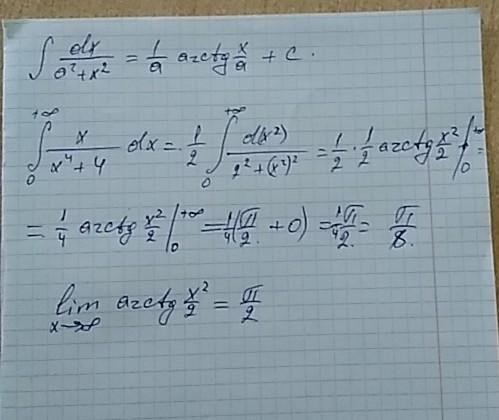 ∫ dx/(a²+x²) = 1/a arctg x/a + c.
∫₀^{+∞} x/(x⁴+4) dx = 1/2 ∫₀^{+∞} d(x²)/(2²+(x²)²) = 1/2 · 1/2 arctg x²/2 |₀^{+∞} =
= 1/4 arctg x²/2 |₀^{+∞} = 1/4(π/2 + 0) = 1/4 π/2 = π/8.
lim_{x→∞} arctg x²/2 = π/2